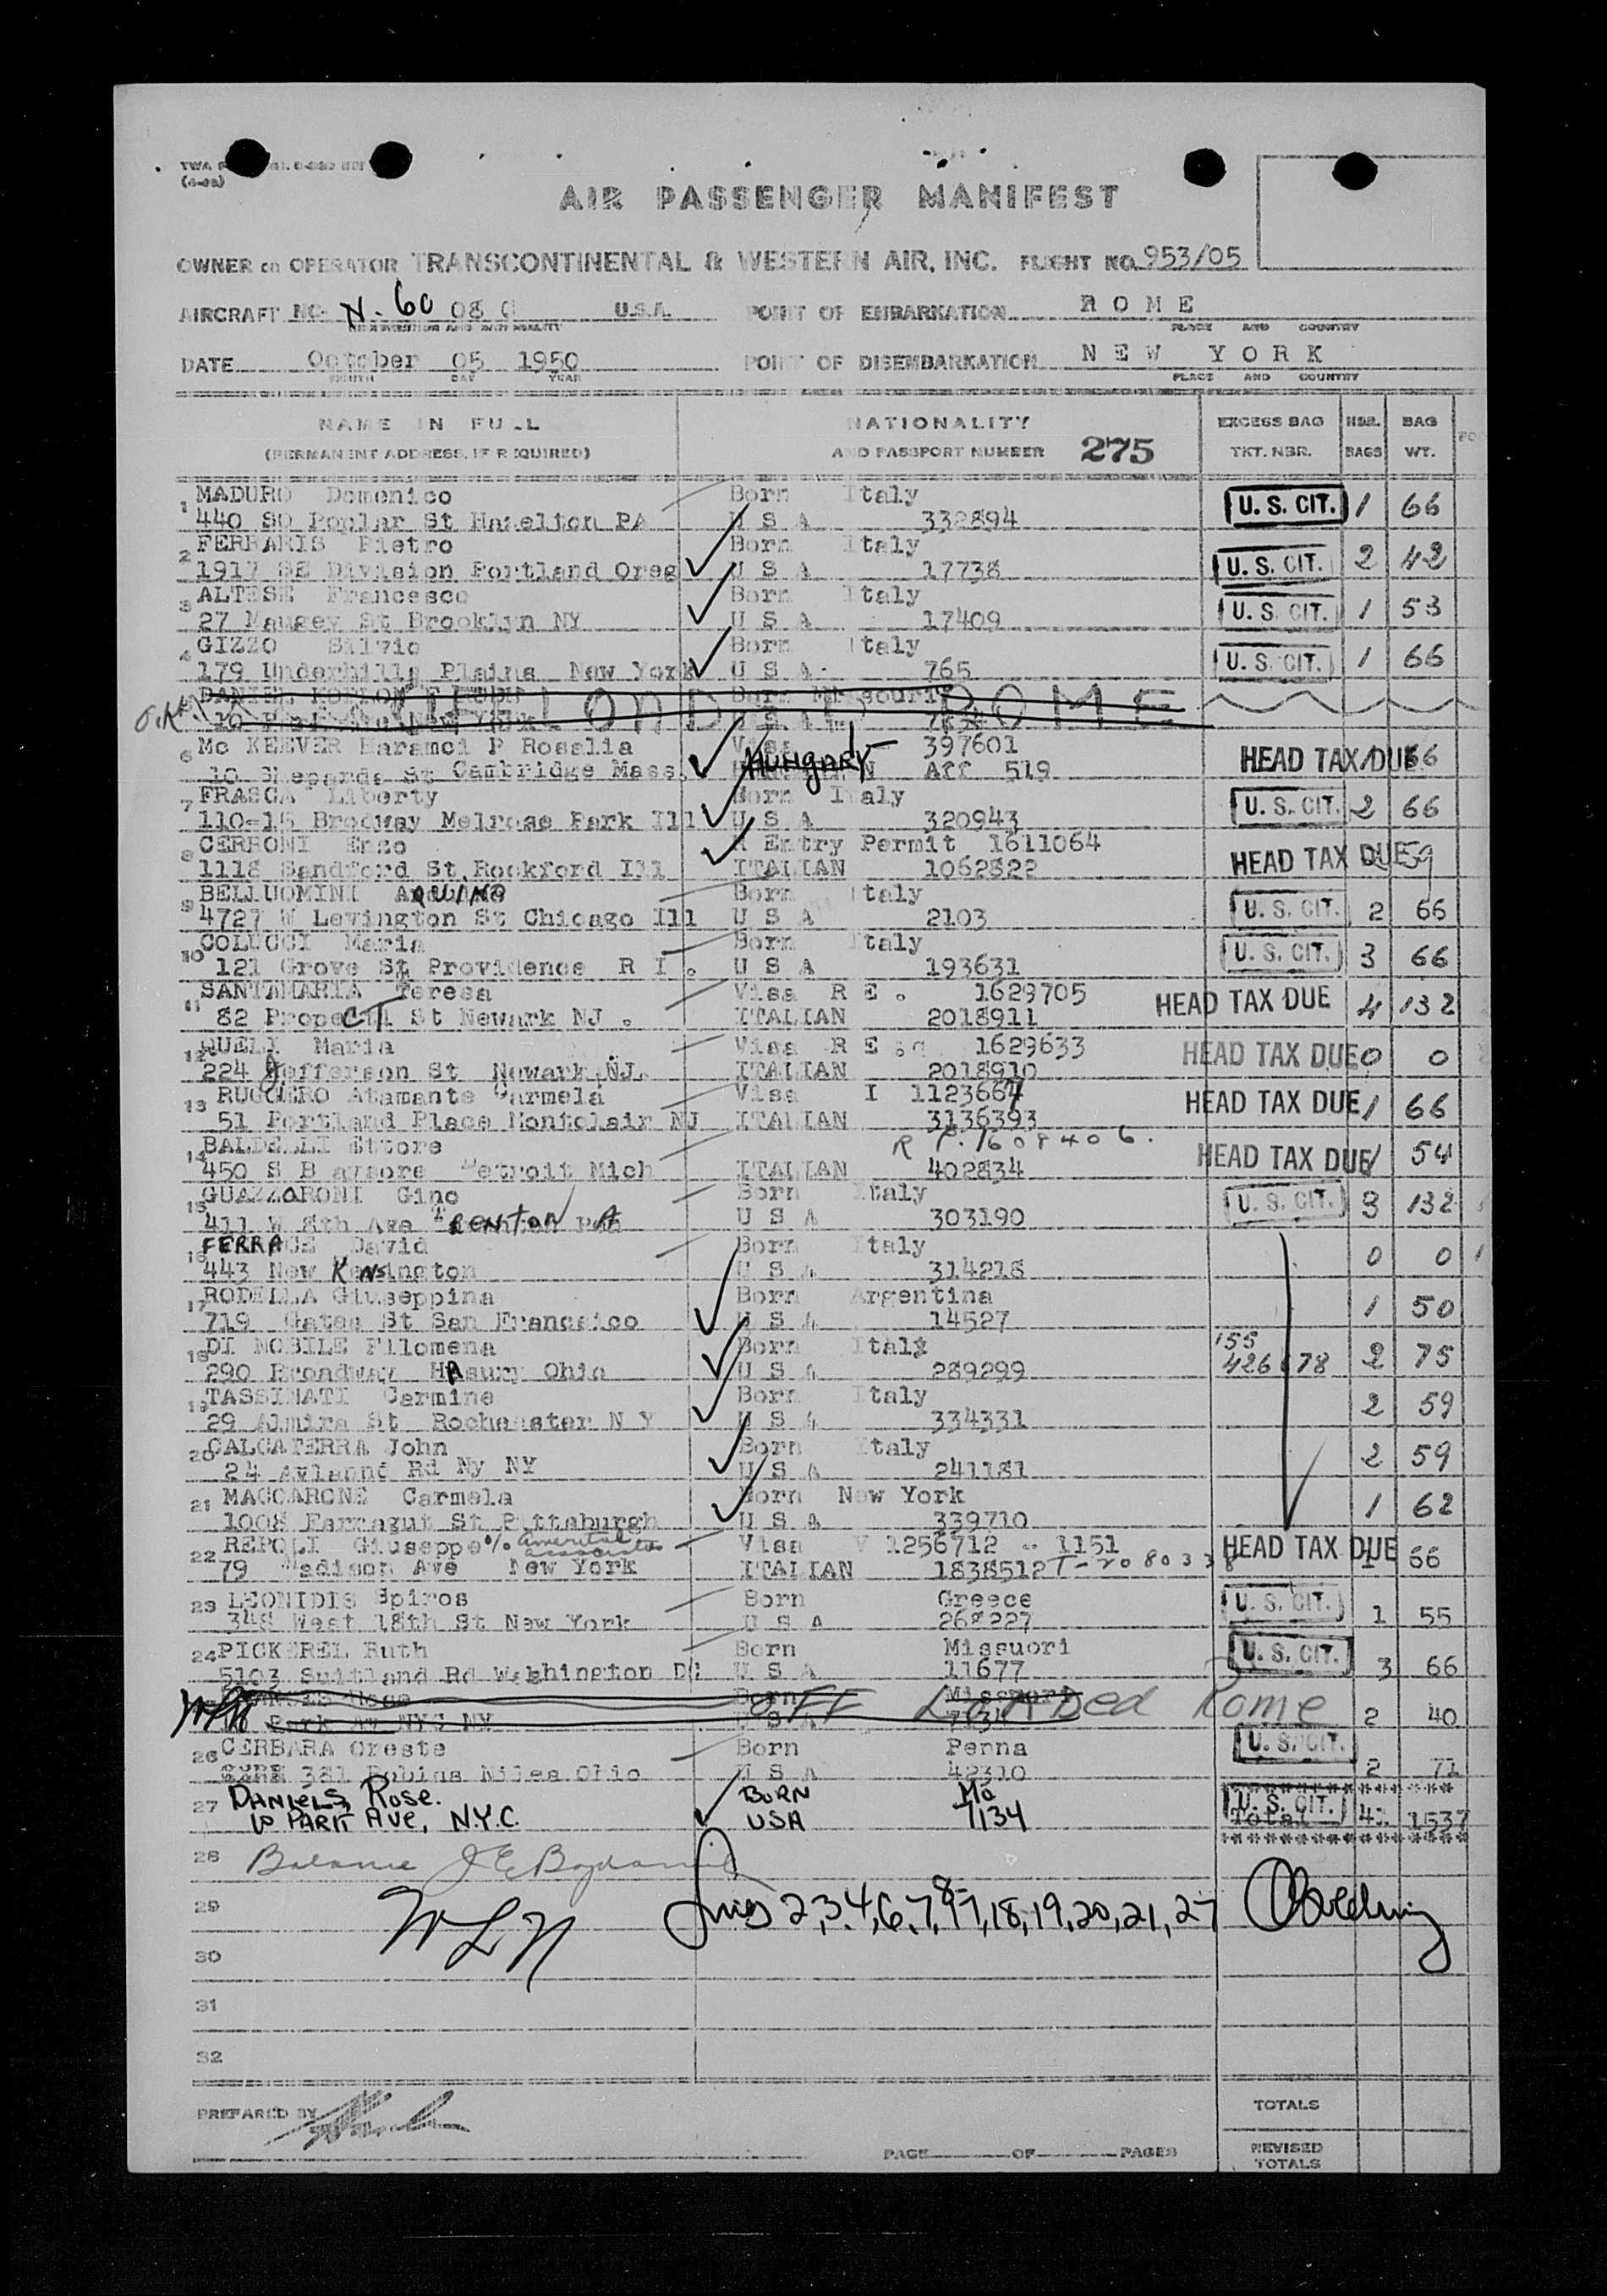 TWA
(4-48)
AIR PASSENGER MANIFEST
OWNER OR OPERATOR TRANSCONTINENTAL & WESTERN AIR, INC. FLIGHT NO. 953/05
AIRCRAFT NO. N-60 08 U.S.A. POINT OF EMBARKATION R O M E
PLACE AND COUNTRY
DATE October 05 1950 POINT OF DISEMBARKATION N E W Y O R K
MONTH DAY YEAR PLACE AND COUNTRY
NAME IN FULL NATIONALITY EXCESS BAG NBR. BAG
(PERMANENT ADDRESS, IF REQUIRED) AND PASSPORT NUMBER 275 TKT. NBR. BAGS WT.
1 MADURO Domenico Born Italy U. S. CIT. 1 66
440 SO Poplar St Hazelton PA U S A 332894
2 FERRARIS Pietro Born Italy U. S. CIT. 2 42
1917 SE Division Portland Oreg U S A 17738
3 ALTESE Francesco Born Italy U. S. CIT. 1 53
27 Mausey St Brooklyn NY U S A 17409
4 GIZZO Silvio Born Italy U. S. CIT. 1 66
179 Underhills Plains New York U S A 765
ROME
6 Mc KEEVER Haramci P Rosalia Visa 397601 HEAD TAX DUE 1 66
10 Shepards St Cambridge Mass. HUNGARY Aff 519
7 FRASCA Liberty Born Italy U. S. CIT. 2 66
110-15 Brodway Melrose Park Ill U S A 320943
8 CERRONI Enzo R Entry Permit 1611064 HEAD TAX DUE 59
1118 Sandford St, Rockford Ill ITALIAN 1062822
9 BELLUOMINI Born Italy U. S. CIT. 2 66
4727 W Levington St Chicago Ill U S A 2103
10 COLUCCI Maria Born Italy U. S. CIT. 3 66
121 Grove St Providence R I . U S A 193631
11 SANTAMARIA Teresa Visa R E . 1629705 HEAD TAX DUE 4 132
82 Prospect St Newark NJ . ITALIAN 2018911
12 QUELI Maria Visa R E 1629633 HEAD TAX DUE 0 0
224 Jefferson St Newark NJ. ITALIAN 2018910
13 RUGGERO Atamante Carmela Visa I 1123667 HEAD TAX DUE 1 66
51 Portland Place Montclair NJ ITALIAN 3136393
14 BALDELLI Ettore R P. 1608406. HEAD TAX DUE 1 54
450 S Detroit Mich ITALIAN 402834
15 GUAZZARONI Gino Born Italy U. S. CIT. 3 132
411 W 8th Ave U S A 303190
16 David Born Italy 0 0
443 New Kensington U S A 314218
17 RODELLA Giuseppina Born Argentina 1 50
719 Gates St San Francsico U S A 14527
18 DI NOBILE Filomena Born Italy 2 75
290 Broadway Ohio U S A 289299
19 TASSINATI Carmine Born Italy 2 59
29 Almira St Rochanster N Y U S A 334331
20 CALCATERRA John Born Italy 2 59
24 Rd Ny NY U S A 241181
21 MACCARONE Carmela Born New York 1 62
1008 Farragut St Pittsburgh U S A 339710
22 REPOLI Giuseppe % Amerital associates Visa V 1256712 - 1151 HEAD TAX DUE 1 66
79 Madison Ave New York ITALIAN 1838512 T-2080338
23 LEONIDIS Spiros Born Greece U. S. CIT. 1 55
348 West 18th St New York U S A 268227
24 PICKEREL Ruth Born Missuori U. S. CIT. 3 66
5103 Suitland Rd Washington DC U S A 11677
OFF LOADED Rome 2 40
Park Av NYC NY U S A
26 CERBARA Oreste Born Penna U. S. CIT. 2 71
381 Robins Niles Ohio U S A 42310
27 DANIELS, ROSE. BORN Mo U. S. CIT.
10 PARK AVE, N.Y.C. USA 7134 Total 41 1537
28 Balance
29 WLN Lines 2,3,4,6,7,8,17,18,19,20,21,27
30
31
32
PREPARED BY TOTALS
PAGE OF PAGES REVISED
TOTALS